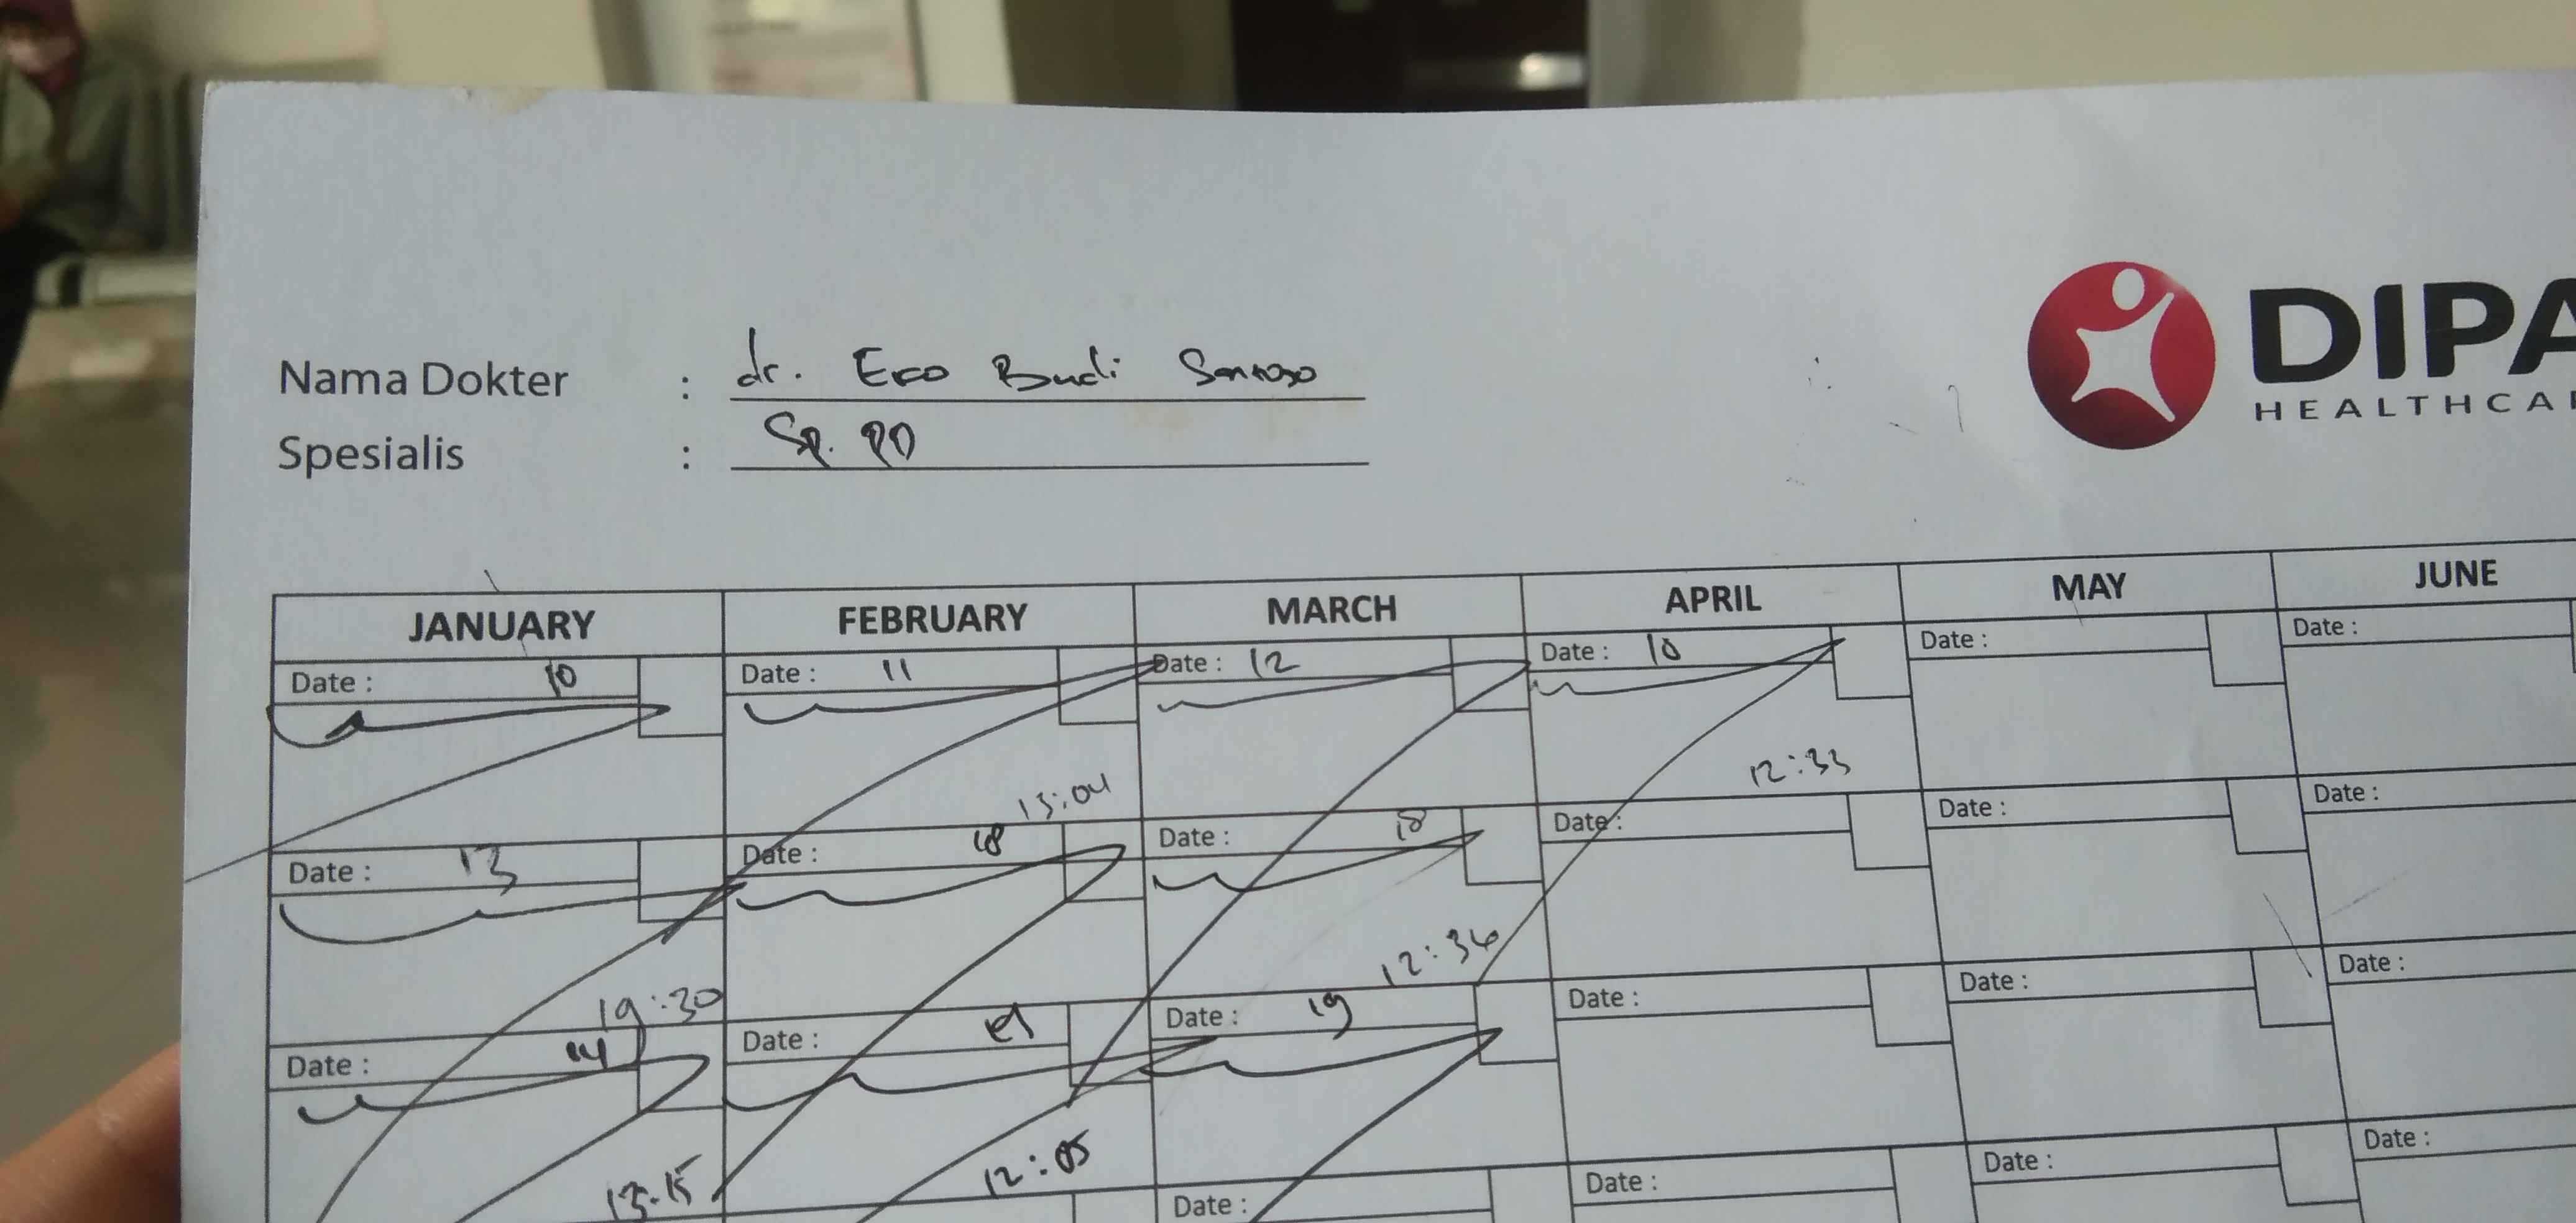 Nama Dokter : dr. Eko Budi Santoso
Spesialis : Sp. PD
DIPA
HEALTHCA
JANUARY FEBRUARY MARCH APRIL MAY JUNE
Date : 10 Date : 11 Date : 12 Date : 10 Date : Date :
13:04 12:33
Date : 13 Date : 18 Date : 18 Date : Date : Date :
19:30 12:36
Date : 14 Date : Date : 19 Date : Date : Date :
13.15 12:05
Date : Date : Date : Date :